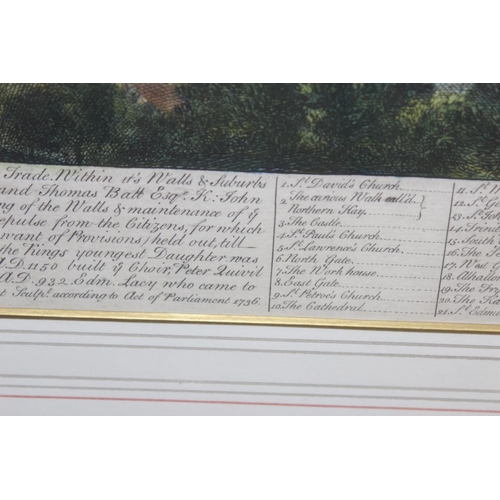 Trade. Within it's Walls & Suburbs
and Thomas Balt Esqr. K. John
ng of the Walls & maintenance of ye
epulse from the Citizens, for which
want of Provisions) held out, till
the Kings youngest Daughter was
A.D. 1150 built ye Choir, Peter Quivil
A.D. 932. Edm. Lacy who came to
t Sculpt. according to Act of Parliament 1736.
1. St. David's Church
2. The curious Walk call'd
Northern Hay.
3. The Castle
4. St. Paul's Church
5. St. Lawrence's Church
6. North Gate
7. The Work house
8. East Gate
9. St. Petroc's Church
10. The Cathedral
11. St.
12. St. G
13. St. 
14. Trinit
15. South
16. The
17. West
18. Alhallow
19. The Fry
20. The
21. St. Edm